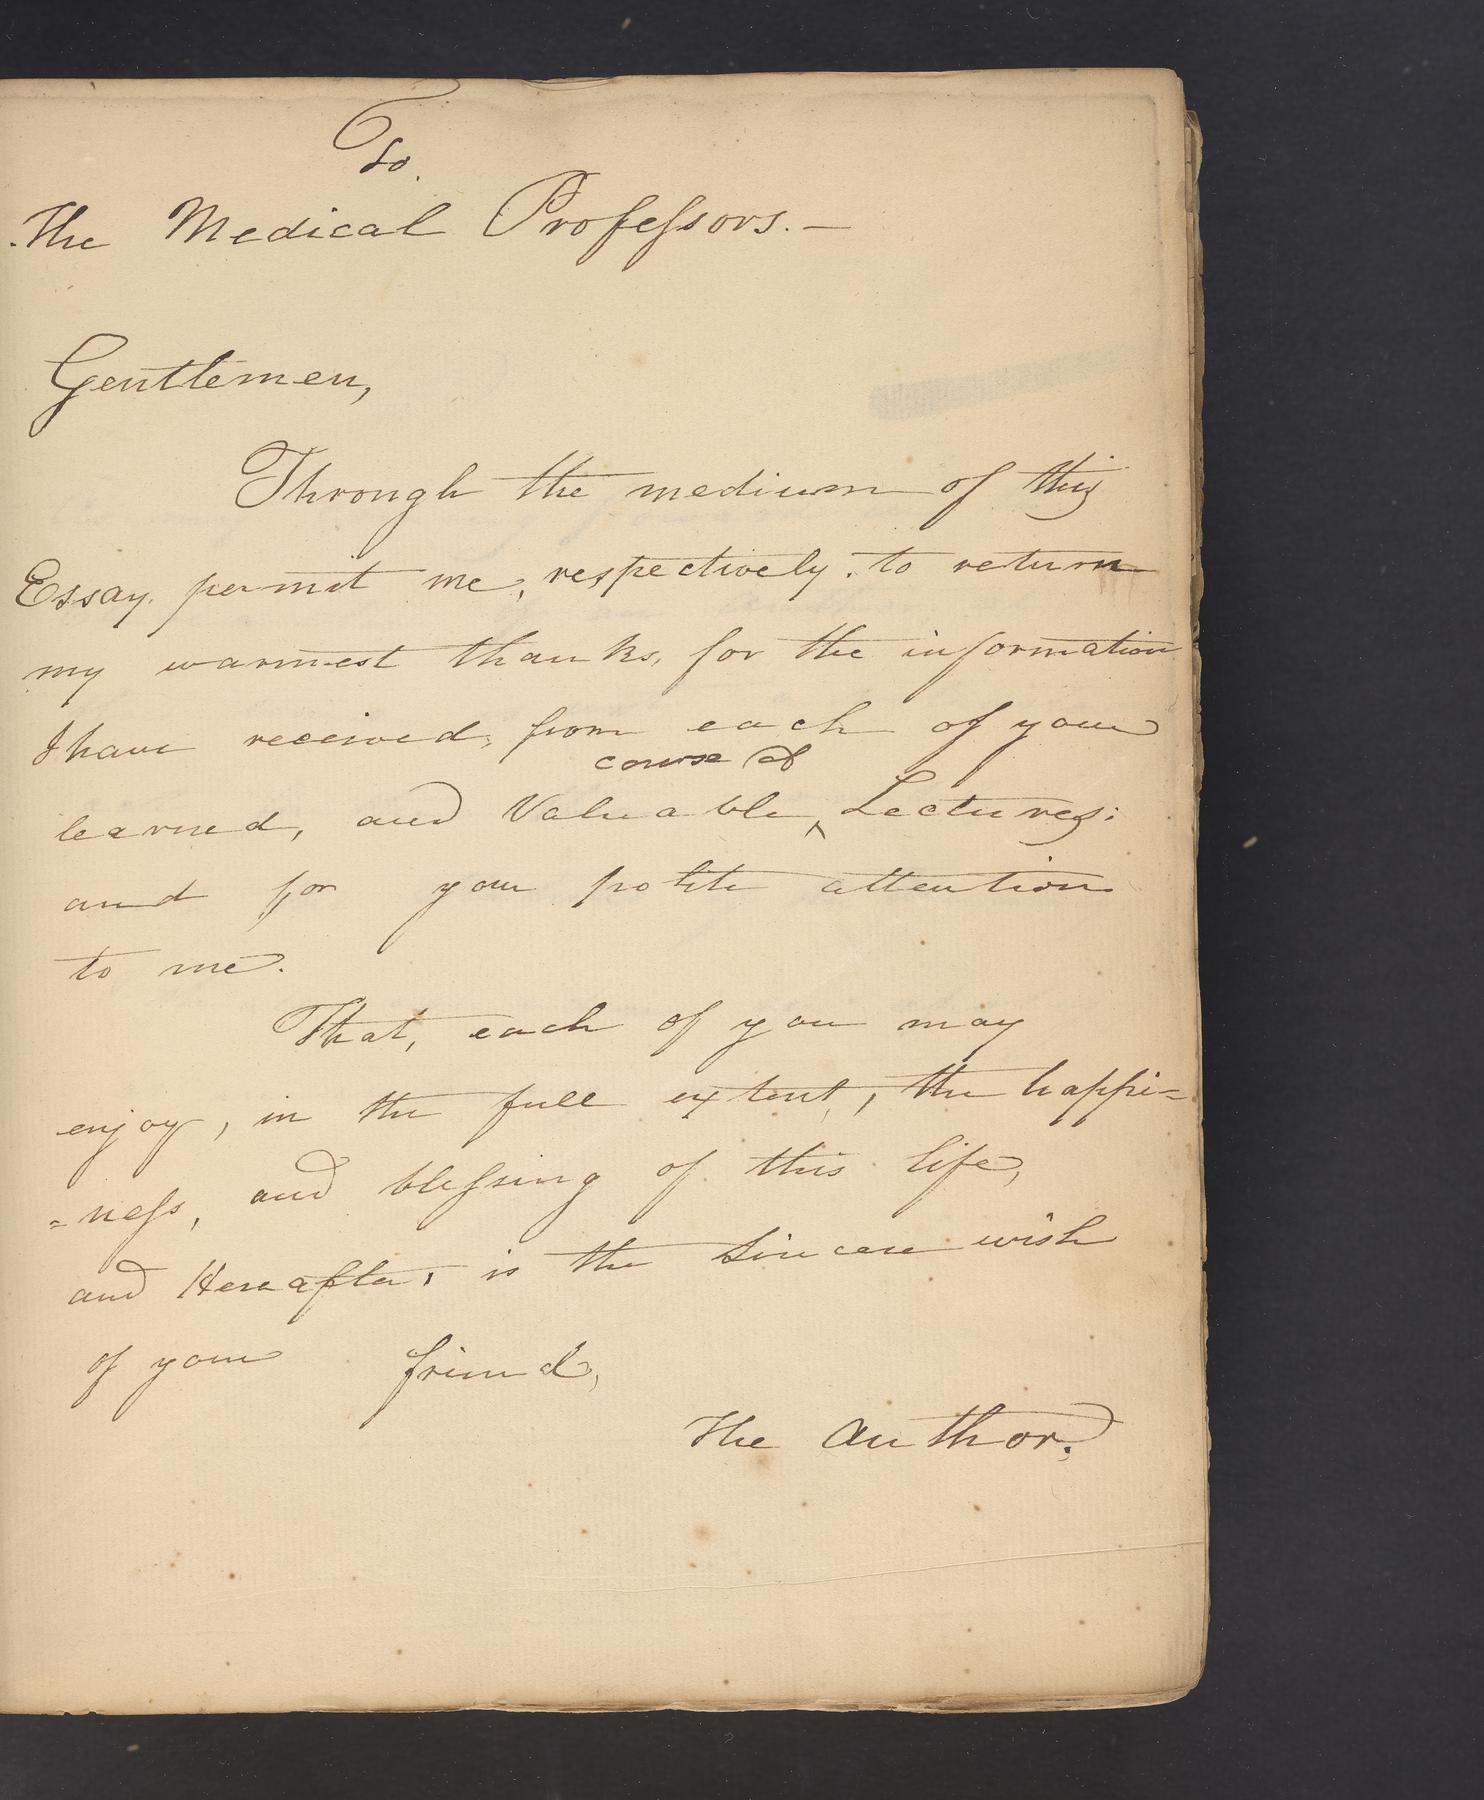 To.
The Medical Profeſsors. —
Gentlemen,
Through the medium of this
Essay permit me, respectively. to return
my warmest thanks, for the information
I have received, from each of your
course of
learned, and Valuable ^ Lectures:
and for your polite attention
to me.
That, each of you may
enjoy, in the full extent, the happi=
=neſs, and bleſsing of this life,
and Hereafter, is the Sincere wish
of your friend,
The Author.